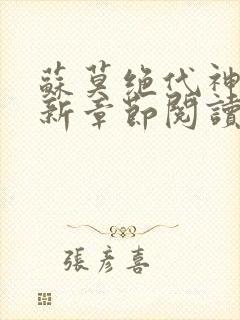 蘇莫绝代神
新章節閱讀
張彦喜